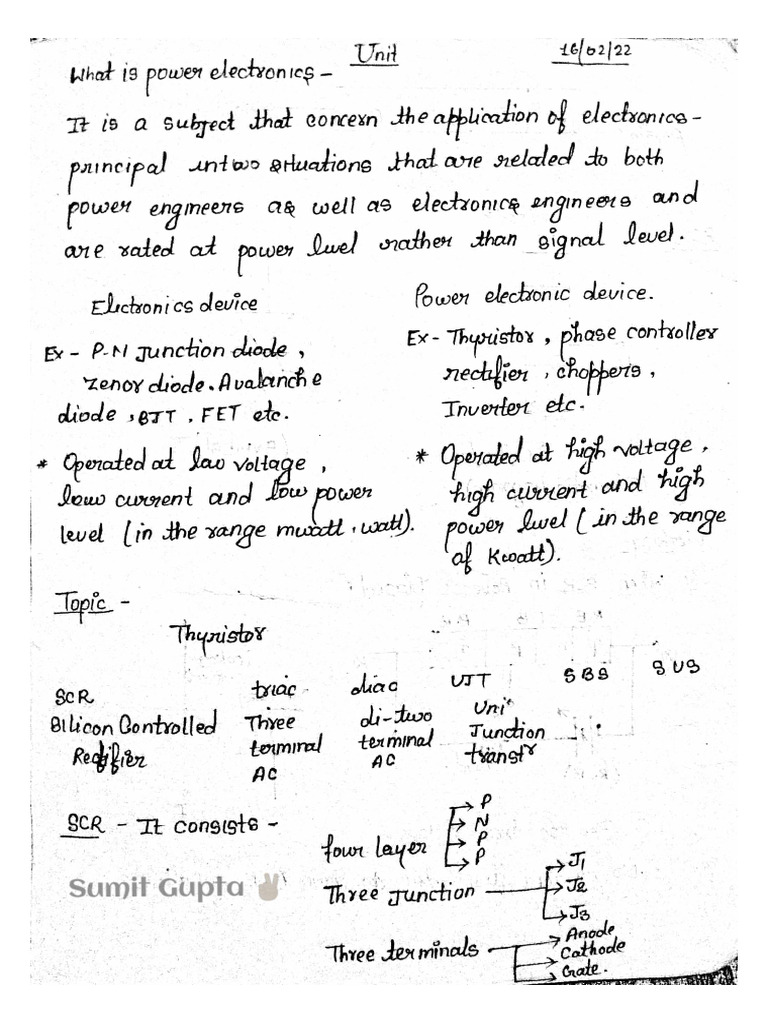 Unit
16/02/22
What is power electronics -
It is a subject that concern the application of electronics -
principal into situations that are related to both
power engineers as well as electronics engineers and
are rated at power level rather than signal level.
Electronics device
Ex - P-N Junction diode,
Zenor diode. Avalanche
diode, BJT, FET etc.
* Operated at law voltage,
low current and low power
level (in the range mwatt, watt).
Power electronic device.
Ex - Thyristor, phase controller
rectifier, choppers,
Inverter etc.
* Operated at high voltage,
high current and high
power level (in the range
of Kwatt).
Topic -
Thyristor
SCR
Silicon Controlled
Rectifier
triac
Three
terminal
AC
diac
di-two
terminal
AC
UJT
Uni
Junction
transtr
SBS
SUS
SCR - It consists -
four layer
P
N
P
P
Three Junction
J1
J2
J3
Three terminals
Anode
Cathode
Gate.
Sumit Gupta ✌